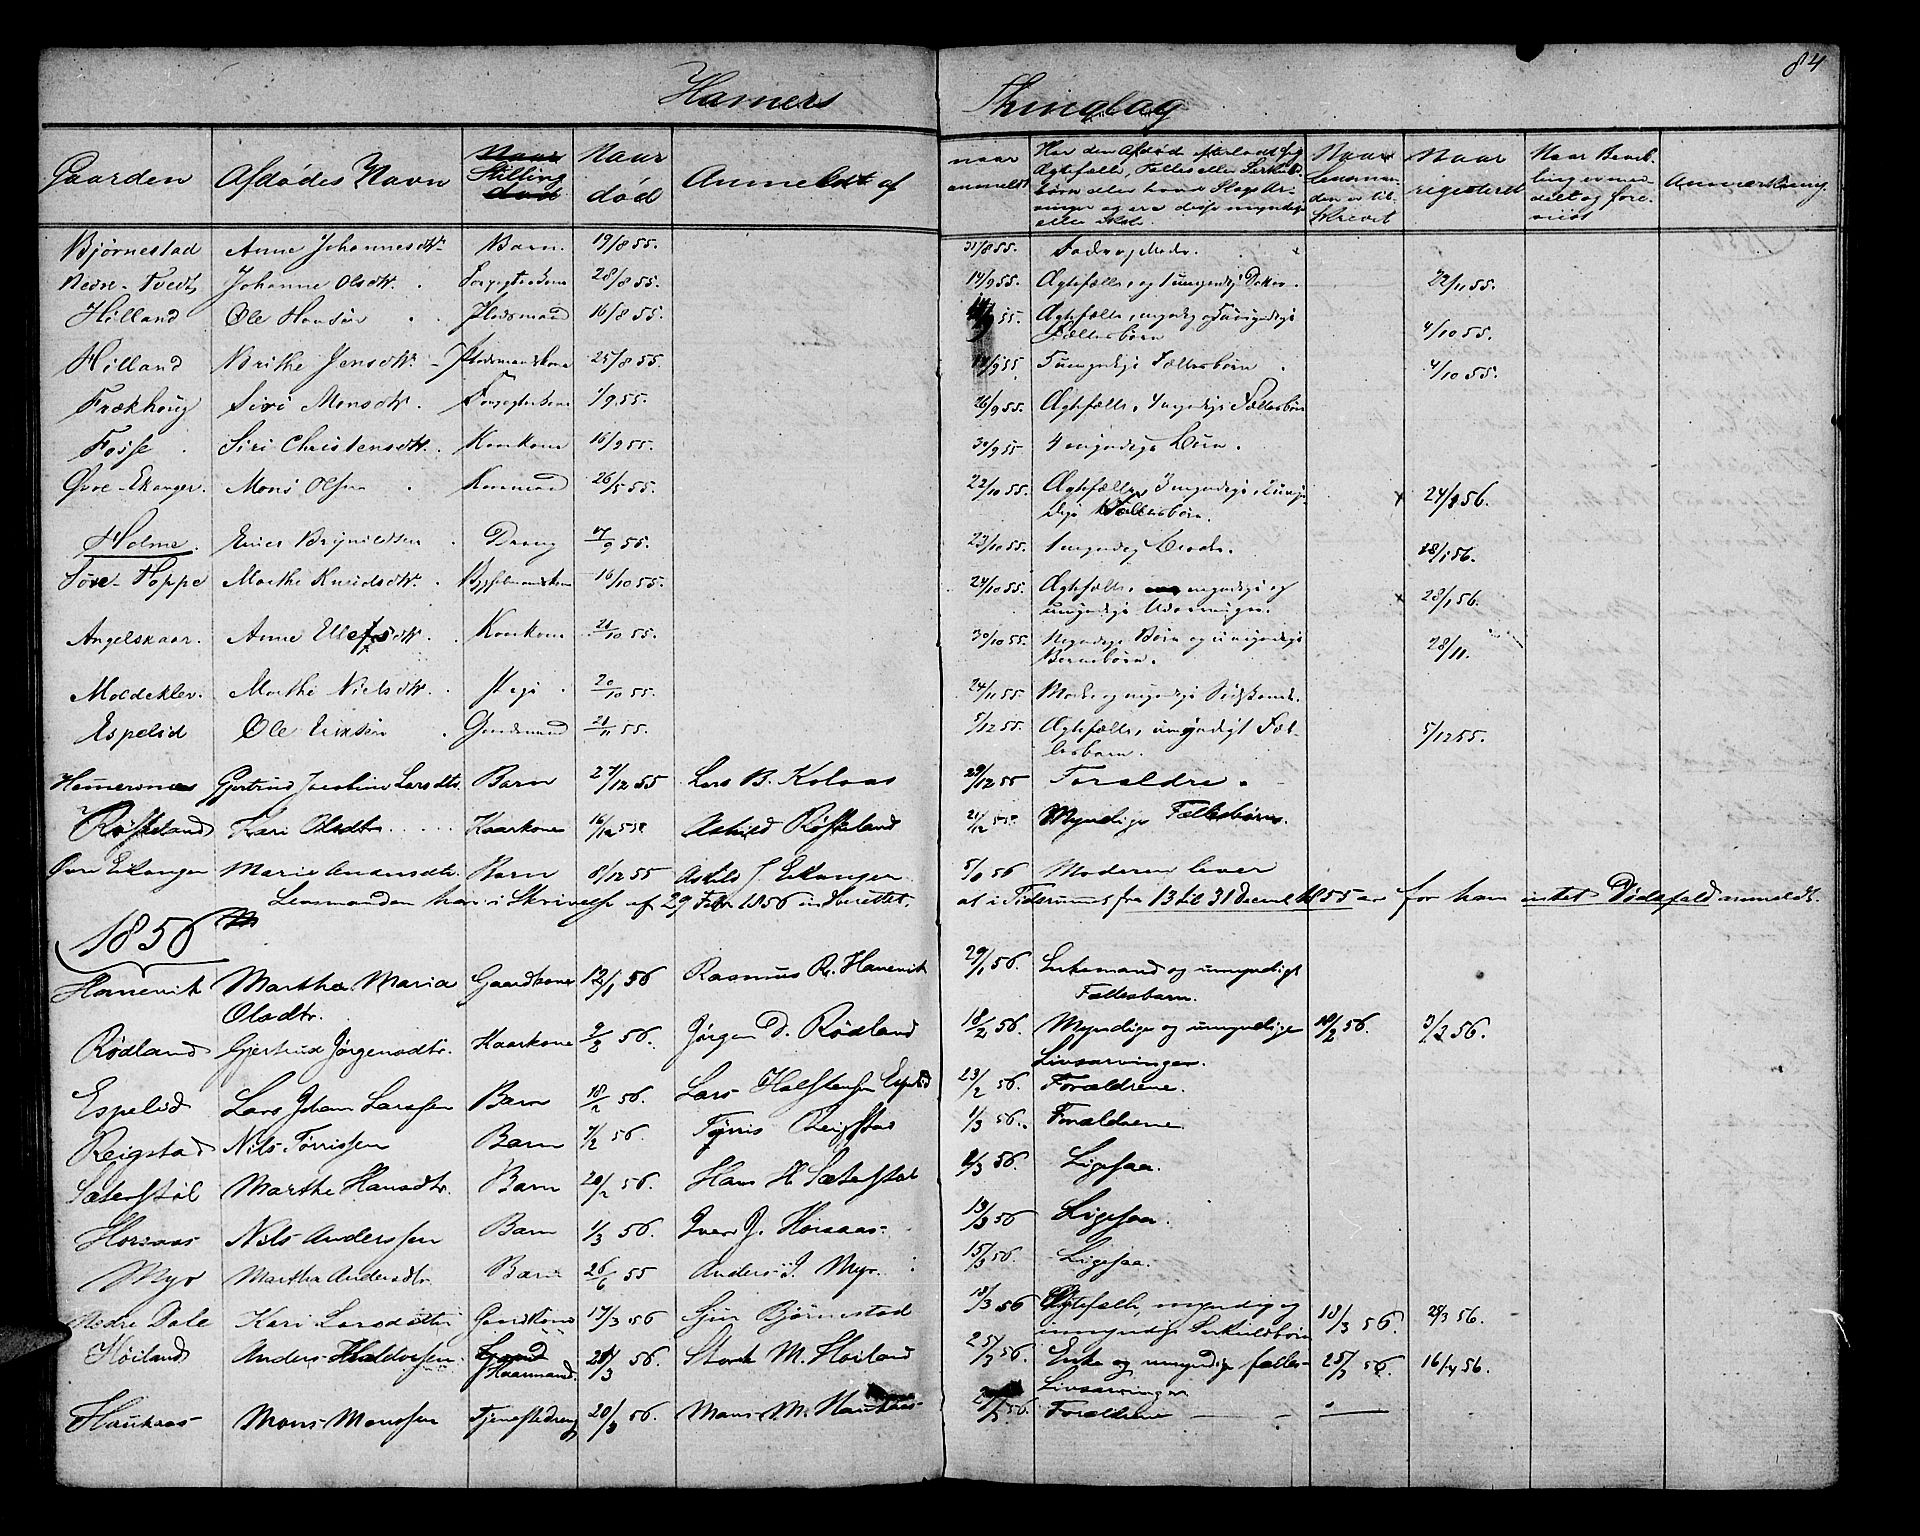 84
Hamers Thinglag
Gaarden | Afdødes Navn | Stilling | Naar død | Anmeldt af | naar anmeldt | Har den Afdøde efterladt sig Ægtefælle, Fælles eller Særkuldsbørn eller hvad Slags Arvinger og ere disse myndige eller ikke | Naar Lensmanden er tilskrevet | Naar registeret | Naar Bevilling er meddelt og foreviist | Anmærkning
Bjørnestad | Anne Johannesdtr | Barn | 19/8 55. | 31/8 55. | Fader og Moder.
Nedre-Tvedt | Johanne Olsdtr. | 28/8 55. | 14/9 55. | Ægtefælle, og 1 umyndig Datter. | 22/11 55.
Hilland | Ole Hansen | Pladsmand | 16/8 55. | Ægtefælle, myndig og umyndige Fællesbørn | 4/10 55.
Hilland | Brithe Jensdtr. | Pladsmandskone | 25/8 55. | 5 umyndige Fællesbørn. | 4/10 55.
Frækhoug | Siri Monsdtr. | 1/9 55. | 26/9 55. | Ægtefælle, 4 myndige Fællesbørn
Fosse | Siri Christensdtr. | Kaarkone | 16/9 55. | 30/9 55 | 4 myndige Børn.
Øvre-Ekanger. | Mons Olsen | Kaarmand | 26/5 55. | 22/10 55. | Ægtefælle, 3 myndige, 2 umyndige Fællesbørn. | 24/1 56.
Holme. | Brynildsen | Dreng | 17/9 55. | 23/10 55. | 1 myndig Broder. | 28/1 56.
Marthe Knudsdtr. | 16/10 55. | 24/10 55. | Ægtefælle, myndige og umyndige Udarvinger. | 28/1 56.
Angelskaar. | Anne Ellefsdtr. | Kaarkone | 21/10 55. | 30/10 55. | Myndige Børn og umyndige Børnebørn. | 28/11.
Moldeklev. | Marthe Nielsdtr. | Pige | 20/10 55. | 24/11 55. | Moder og myndige Sødskende.
Espelid | Ole Eriksen | Gaardmand | 21/11 55. | 5/12 55. | Ægtefælle, umyndigt Fællesbarn. | 5/12 55.
Hamersnes | Gjertrud Jacobine Larsdtr. | Barn | 27/12 55 | Lars B. Kolaas | 29/12 55 | Forældre.
Røsseland | Kari Olsdtr. | Kaarkone | 16/12 55. | Røsseland | 21/12 55. | Myndige Fællesbørn.
Øvre Eikanger | Marie Andersdtr. | Barn | 8/12 55 | Askild J. Eikanger | Moderen lever
Lensmanden har i Skrivelse af 29 Febr 1856 underrettet, at i Tidsrummet fra 13 til 31 Decemb 1855 er for ham intet Dødsfald anmeldt.
1856
Hanevik | Martha Maria Olsdtr. | Gaardkone | 12/1 56 | Rasmus R. Hanevik | 29/1 56. | Enkemand og umyndigt Fællesbarn.
Rødland | Gjertrud Jørgensdtr. | Kaarkone | 9/2 56. | Jørgen D. Rødland | 18/2 56. | Myndige og umyndige Livsarvinger. | 18/2 56. | 3/3 56.
Espelid | Lars Johan Larssen | Barn | 18/2 56. | Lars Halstensen Espelid | 23/2 56. | Forældrene.
Reigstad | Nils Tørrissen | Barn | 7/2 56. | Tørris Reigstad | 1/3 56. | Forældrene
Sæterstøl | Marthe Hansdtr. | Barn | 20/2 56. | Hans H. Sæterstøl | 8/3 56. | Ligesaa.
Horsaas | Nils Anderssen | Barn | 1/3 56. | Iver J. Horsaas | 13/3 56 | Ligesaa.
Myr | Martha Andersdtr. | Barn | 26/6 55 | Anders J. Myr. | 15/3 56. | Ligesaa.
Nedre Dale | Kari Larsdatter | Gaardkone | 17/3 56 | Sjur Bjørnestad | 18/3 56 | Ægtefælle, myndig og umyndige Særkuldsbørn | 18/3 56. | 29/3 56.
Høiland | Anders Haldorsen | Kaarmand. | 20/3 56. | M. Høiland | 25/3 56. | Enke og umyndige fælles Livsarvinger. | 25/3 56. | 16/4 56.
Haukaas | Mons Monssen | Tjenestedreng | 20/3 56. | Mons M. Haukaas | Forældrene